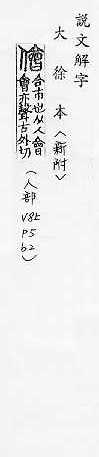 說文解字
大徐本〈新附〉
儈 合市也从人會
會亦聲古外切
(人部
V8上
P5
b2)